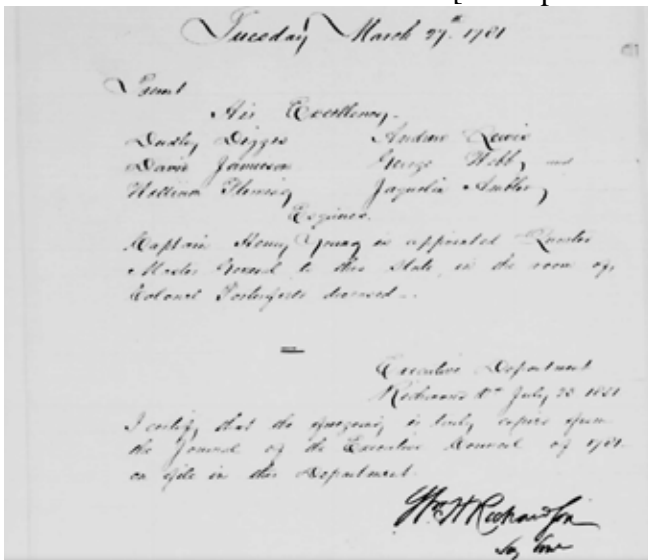 Tuesday March 27th 1781
Present
His Excellency.
Dudley Digges Andrew Lewis
David Jameson George Webb, and
William Fleming Jaquelin Ambler,
Esquires.
Captain Henry Young is appointed Quarter
Master General to this State in the room of
Colonel deceased
Executive Department
Richmond Va July 25
I certify that the foregoing is truly copied from
the Journal of the Executive Council of 1781
on file in this Department.
Wm H Richardson